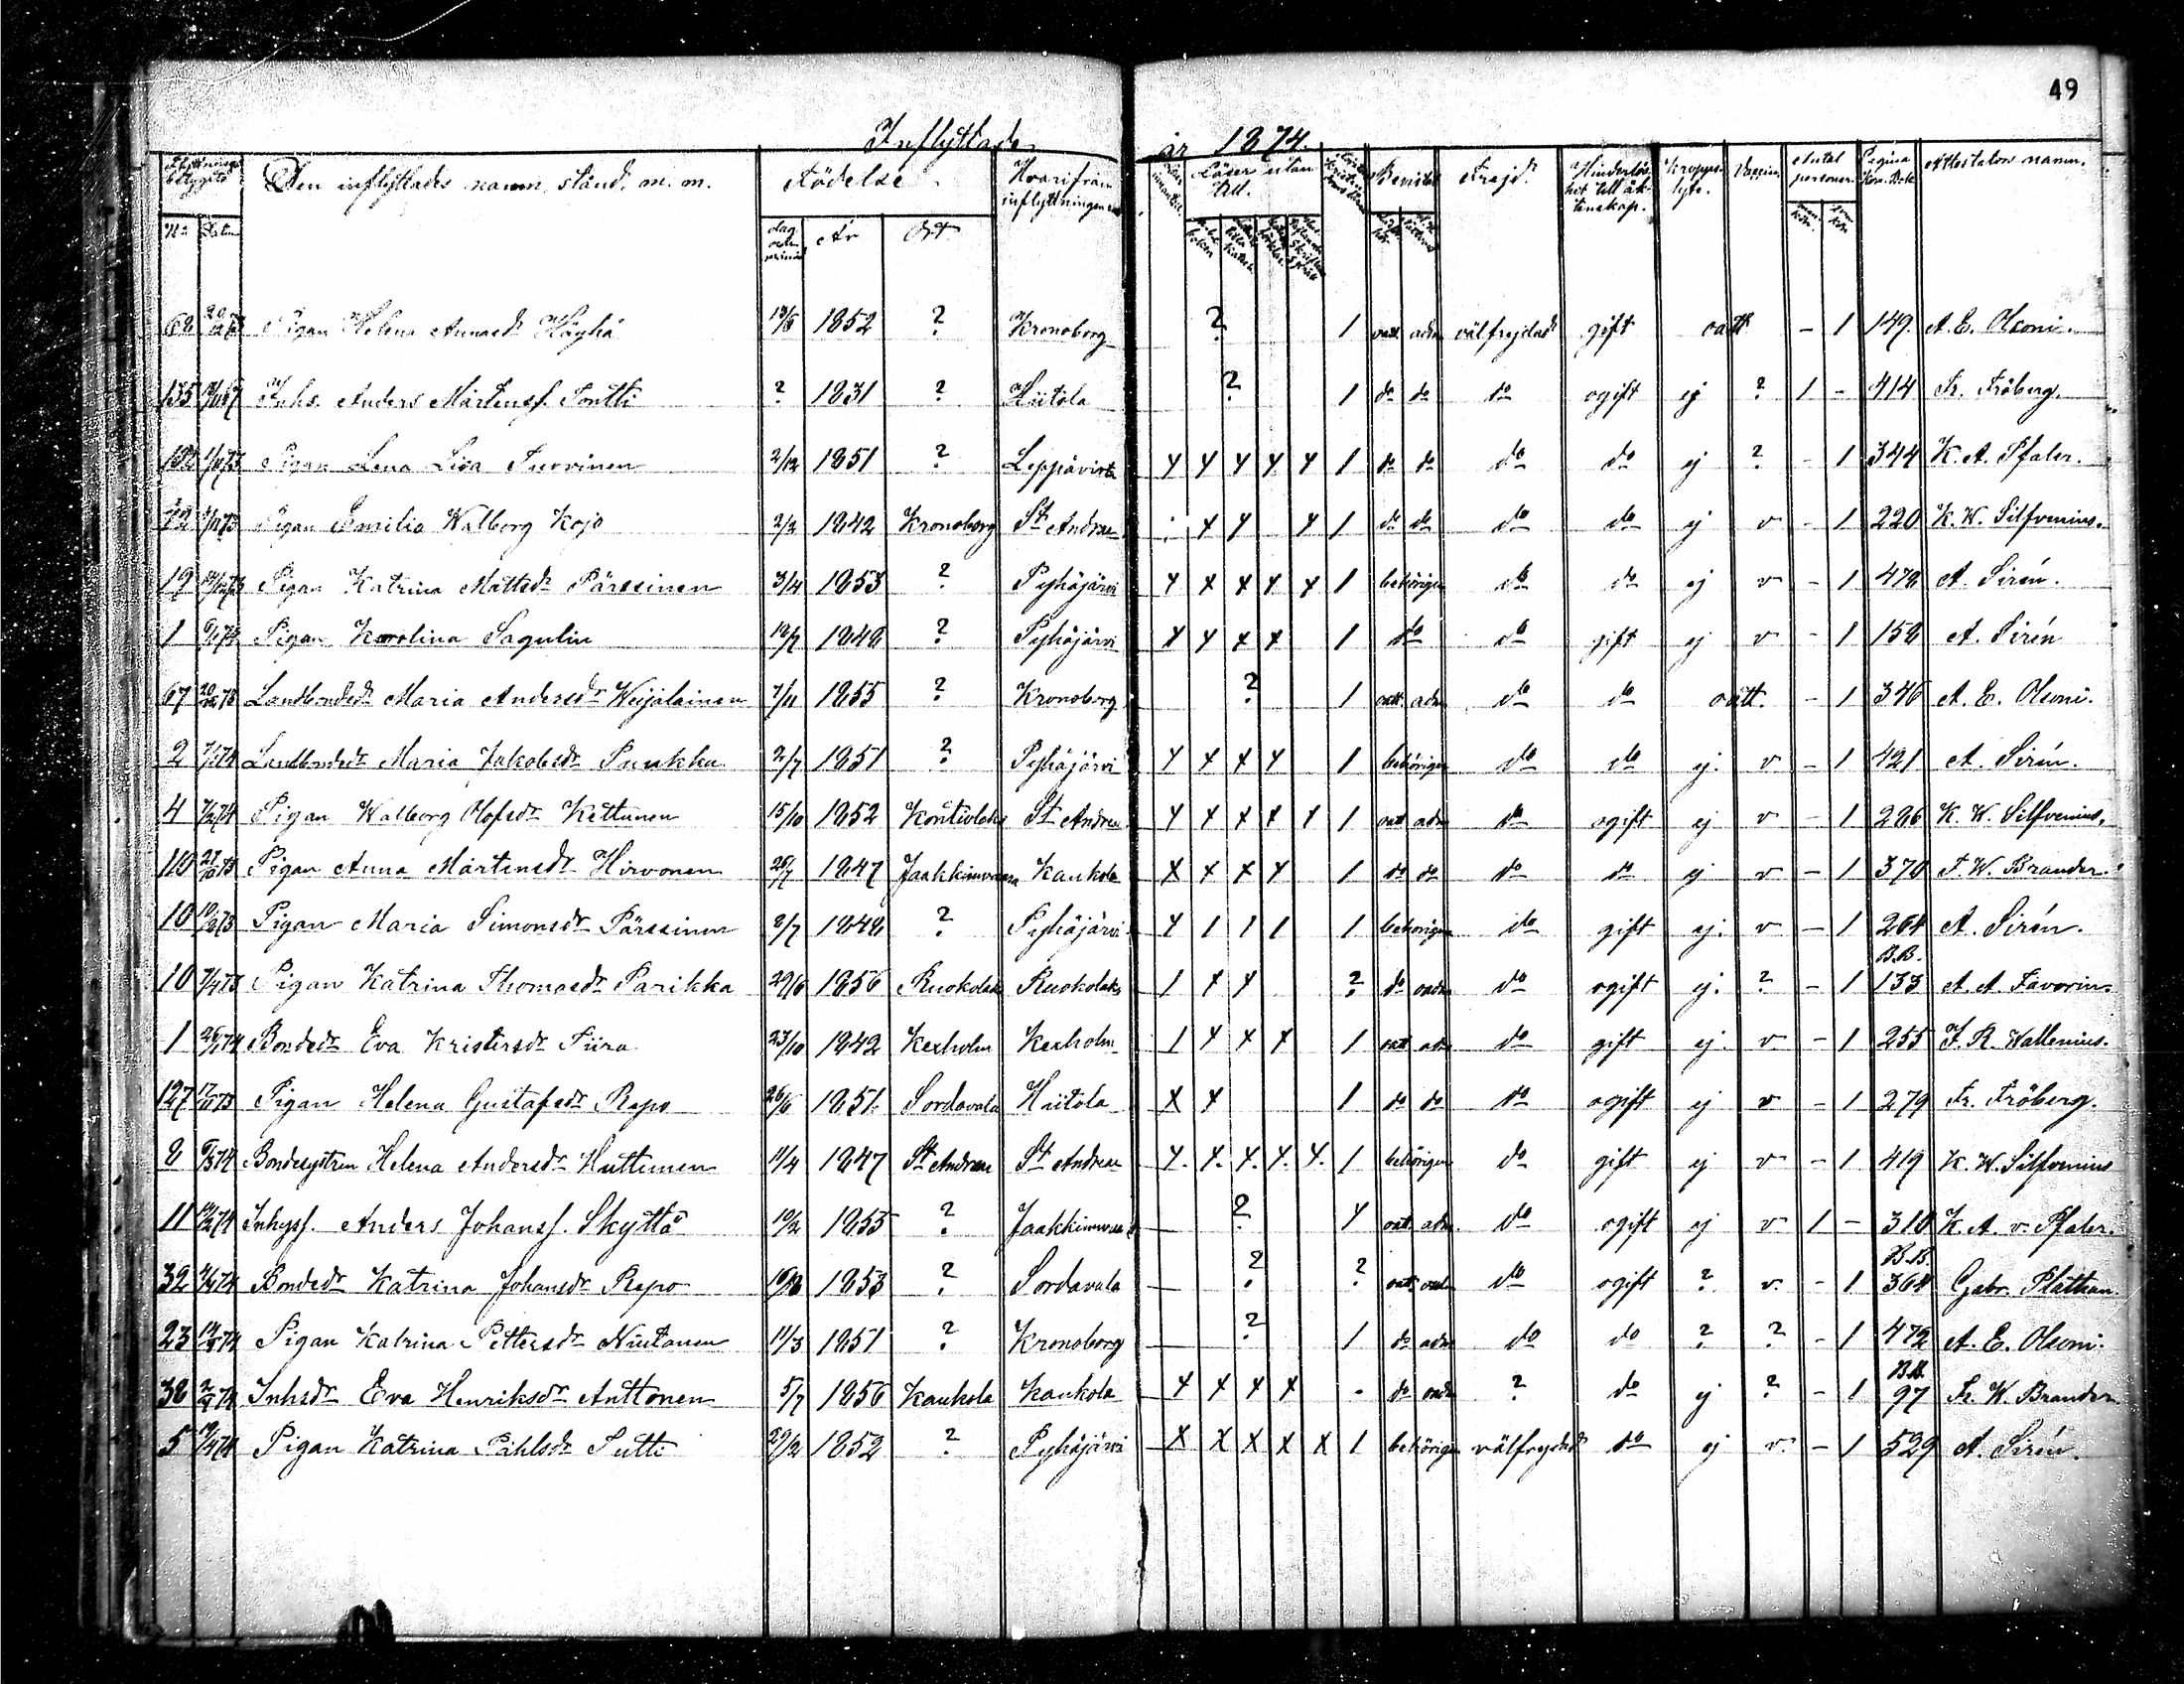 49
Inflyttade år 1874.
Den inflyttades namn, stånd, m. m. Födelse Hvarifrån inflyttningen Läser utan till. Frejd. Hinderlöshet till äktenskap. Kroppslyte. Vaccin. Antal personer. Pagina Kom. Bok Attestators namn.
No Datum dag och månad År Ort
68 20/12 73 Pigan Helena Annasdr Käyhä 13/5 1852 ? Kronoborg ? 1 oatt adm välfrejdad gift oatt – 1 149. A. E. Olsoni.
135 Inhs. Anders Mårtenss. Tontti ? 1831 ? Hiitola ? 1 do do do ogift ej ? 1 – 414 Fr. Fröberg.
Pigan Lena Lisa Turvinen 2/12 1851 ? Leppävirta x x x x x 1 do do do do ej ? – 1 344 K. A. Pfaler.
Pigan Emilia Walborg Kojo 2/2 1842 Kronoborg St Andreæ x x x 1 do do do do ej v – 1 220 K. W. Silfvenius.
19 Pigan Katrina Mattsdr Pärssinen 3/4 1853 ? Pyhäjärvi x x x x x 1 behörigen do do ej v – 1 478 A. Sirén.
1 Pigan Karolina Sagulin 1848 ? Pyhäjärvi x x x x 1 do do gift ej v – 1 158 A. Sirén
67 20/12 73 Landbondedr Maria Andersdr Weijalainen 7/11 1855 ? Kronoborg ? 1 oatt. adm do do oatt. – 1 346 A. E. Olsoni.
2 7/1 74 Landbondedr Maria Jakobsdr Puukka 2/7 1851 ? Pyhäjärvi x x x x 1 behörigen do do ej. v – 1 421 A. Sirén.
4 7/2 74 Pigan Walborg Olofsdr Kettunen 15/10 1852 Kontiolaks St Andreæ x x x x x 1 oatt adm do ogift ej v – 1 286 K. W. Silfvenius.
110 Pigan Anna Mårtensdr Hirvonen 1847 Jaakkimvaara Kaukola x x x x 1 do do do do ej v – 1 370 F. W. Brander.
10 Pigan Maria Simonsdr Pärssinen 2/7 1848 ? Pyhäjärvi x 1 1 1 1 behörigen do gift ej. v – 1 264 A. Sirén.
10 7/4 73 Pigan Katrina Thomasdr Parikka 29/6 1856 Ruokolaks Ruokolaks 1 x x ? do oadm do ogift ej. ? – 1 B.B. 133 A. A. Favorin.
1 26/1 74 Bondedr Eva Kristersdr Tiira 23/10 1842 Kexholm Kexholm 1 x x x 1 oatt adm do gift ej. v – 1 255 F. R. Wallenius.
127 17/11 73 Pigan Helena Gustafsdr Repo 26/6 1851. Sordavala Hiitola x x 1 do do do ogift ej v – 1 279 Fr. Fröberg.
8 Bondesystern Helena Andersdr Huttunen 11/4 1847 St Andreæ St Andreæ x. x. x. x. x. 1 behörigen do gift ej v – 1 419 K. W. Silfvenius
11 Inhyss. Anders Johanss. Skyttä 10/2 1855 ? Jaakkimvaara ? x oatt. adm. do ogift ej v 1 – 310 K. A. v. Pfaler.
32 Bondedr Katrina Johansdr Repo 1853 ? Sordavala ? ? oatt. oadm do ogift ? v. – 1 B.B. 364 Gabr. Plathan.
23 Pigan Katrina Pettersdr Niutanen 11/3 1851 ? Kronoborg ? 1 do adm do do ? ? – 1 472 A. E. Olsoni.
38 Inhsdr Eva Henriksdr Anttonen 5/7 1856 Kaukola Kaukola x x x x do oadm ? do ej ? – 1 B.B. 97 Fr. W. Brander
5 Pigan Katrina Påhlsdr Sutti 29/2 1852 ? Pyhäjärvi x x x x x 1 behörigen välfrejdad do ej v. – 1 529 A. Sirén.